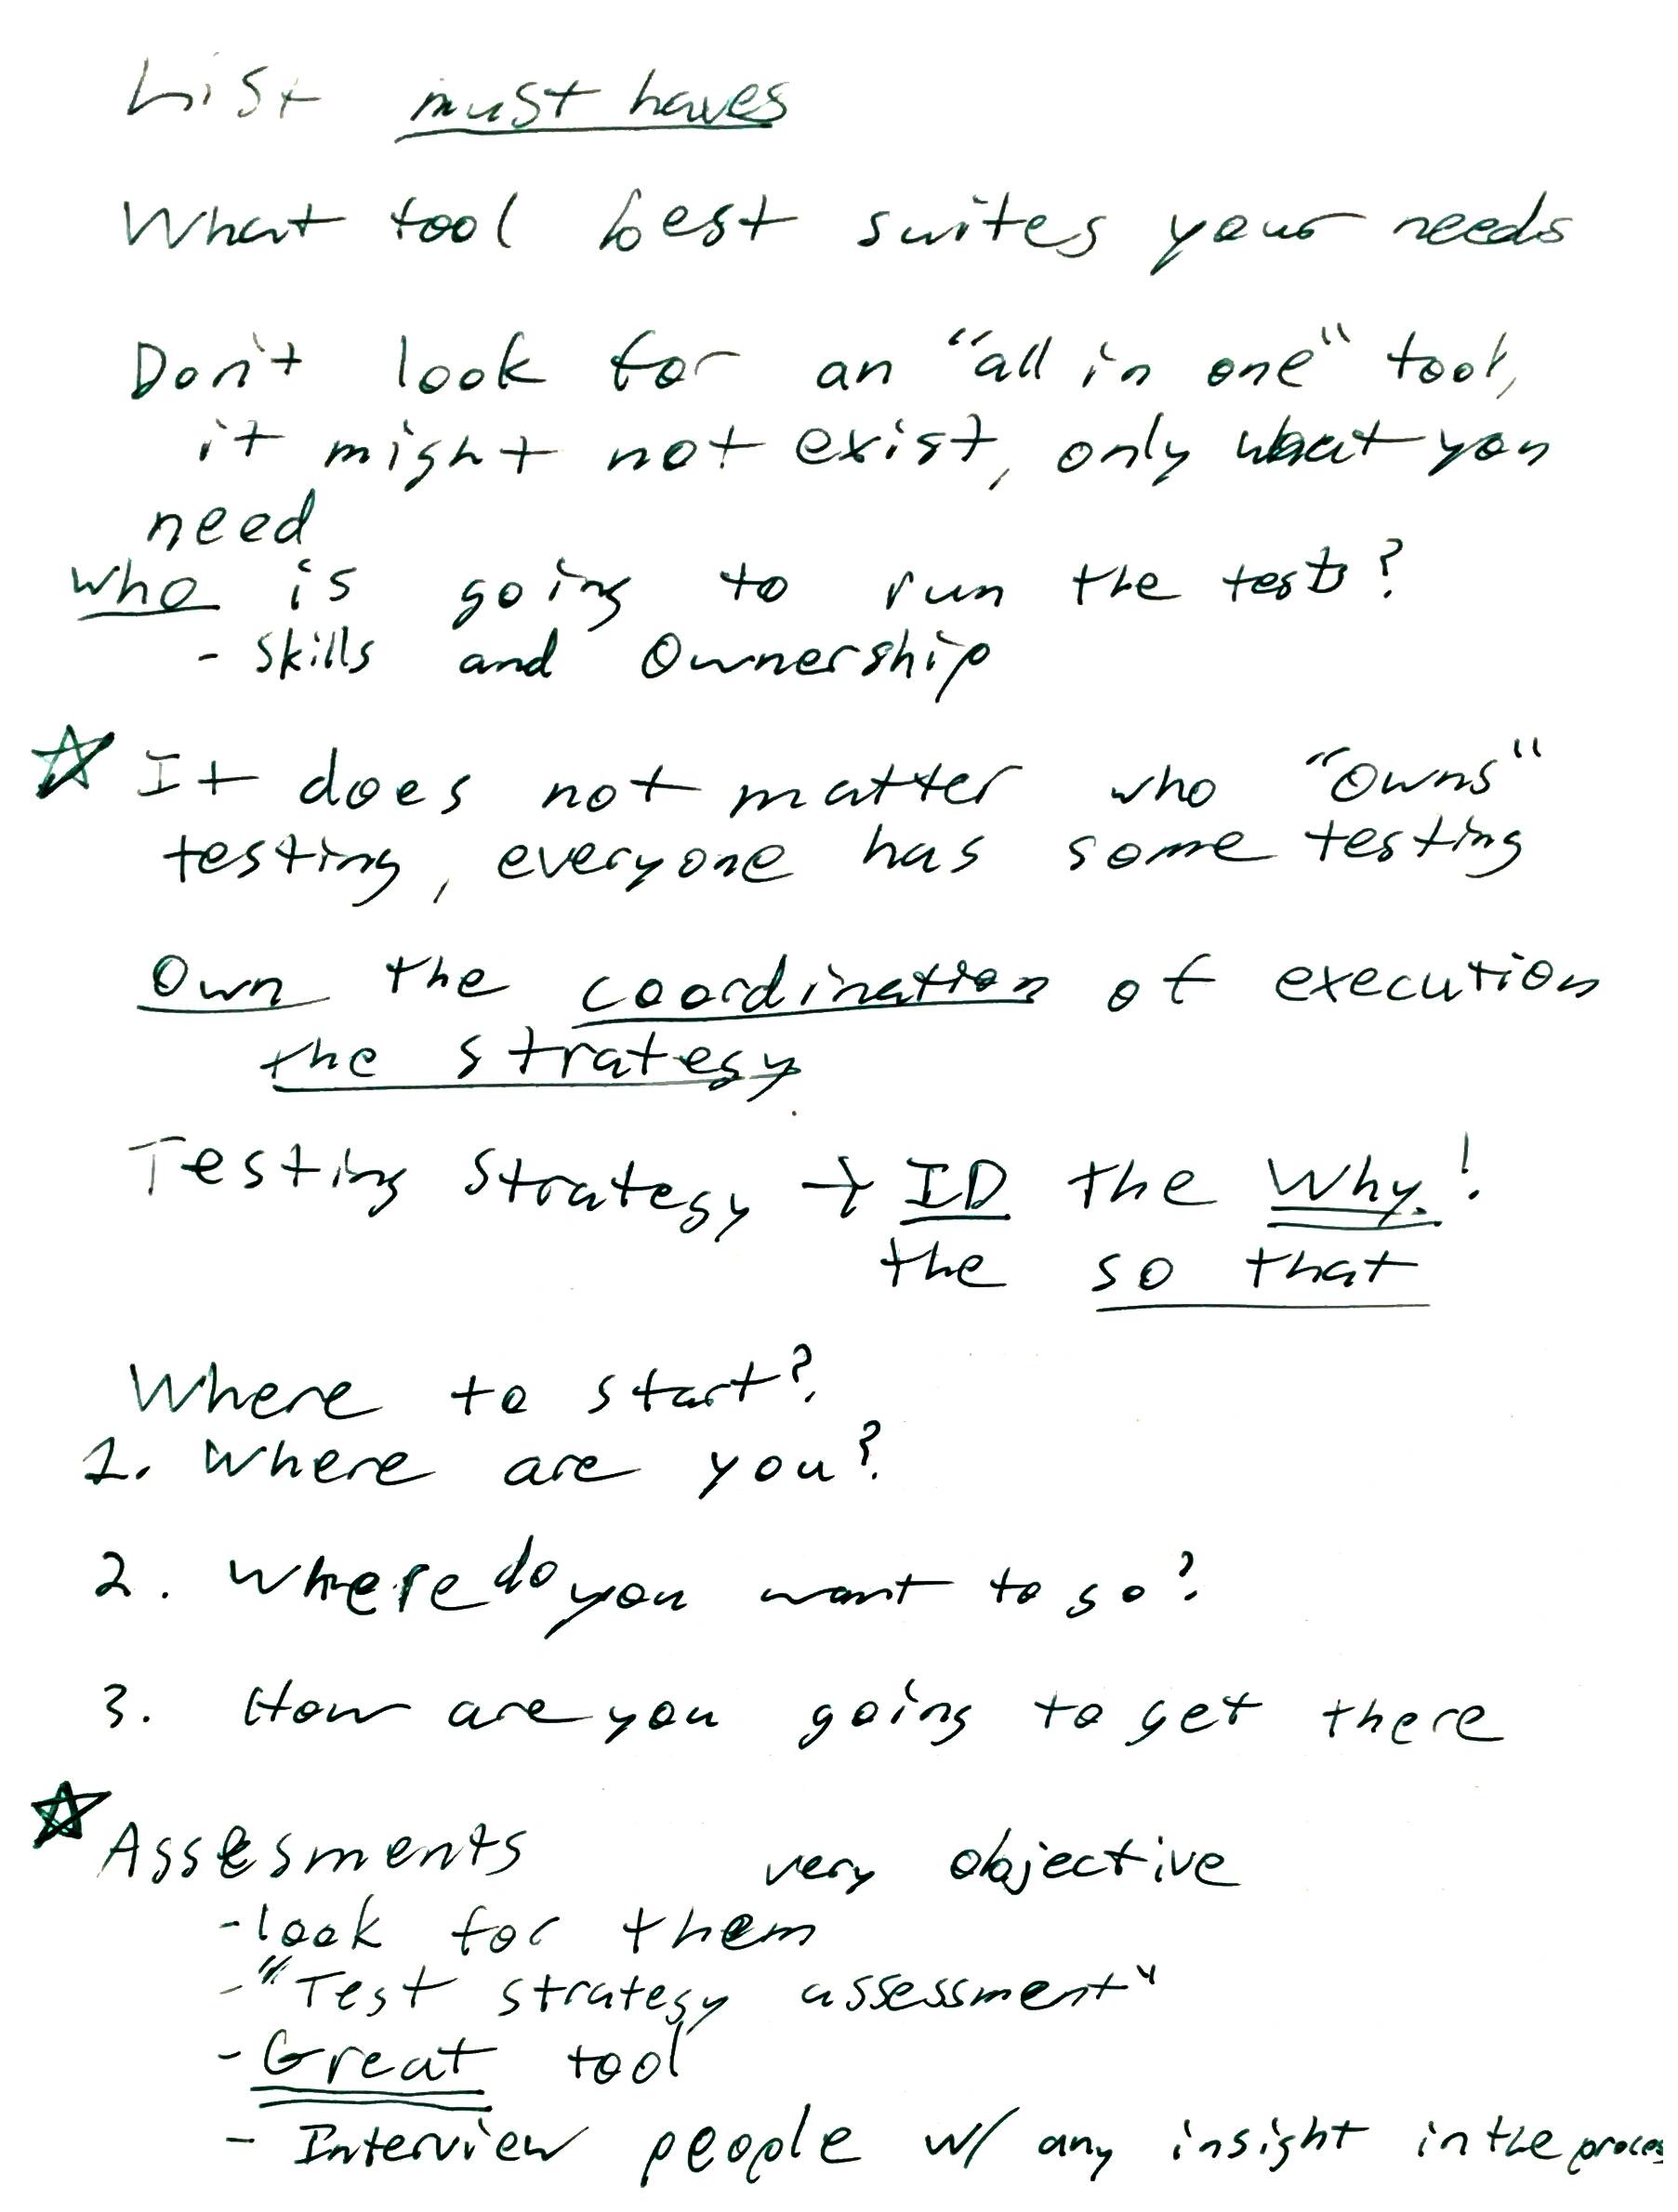 List must haves
What tool best suites your needs
Don't look for an "all in one" tool,
it might not exist, only what you
need
who is going to run the tests?
- Skills and Ownership
☆ It does not matter who "owns"
testing, everyone has some testing
Own the coordination of execution
the strategy.
Testing strategy → ID the Why!
the so that
Where to start?
1. Where are you?
2. Where do you want to go?
3. How are you going to get there
☆ Assesments very objective
- look for them
- "Test strategy assessment"
- Great tool
- Interview people w/ any insight in the proces